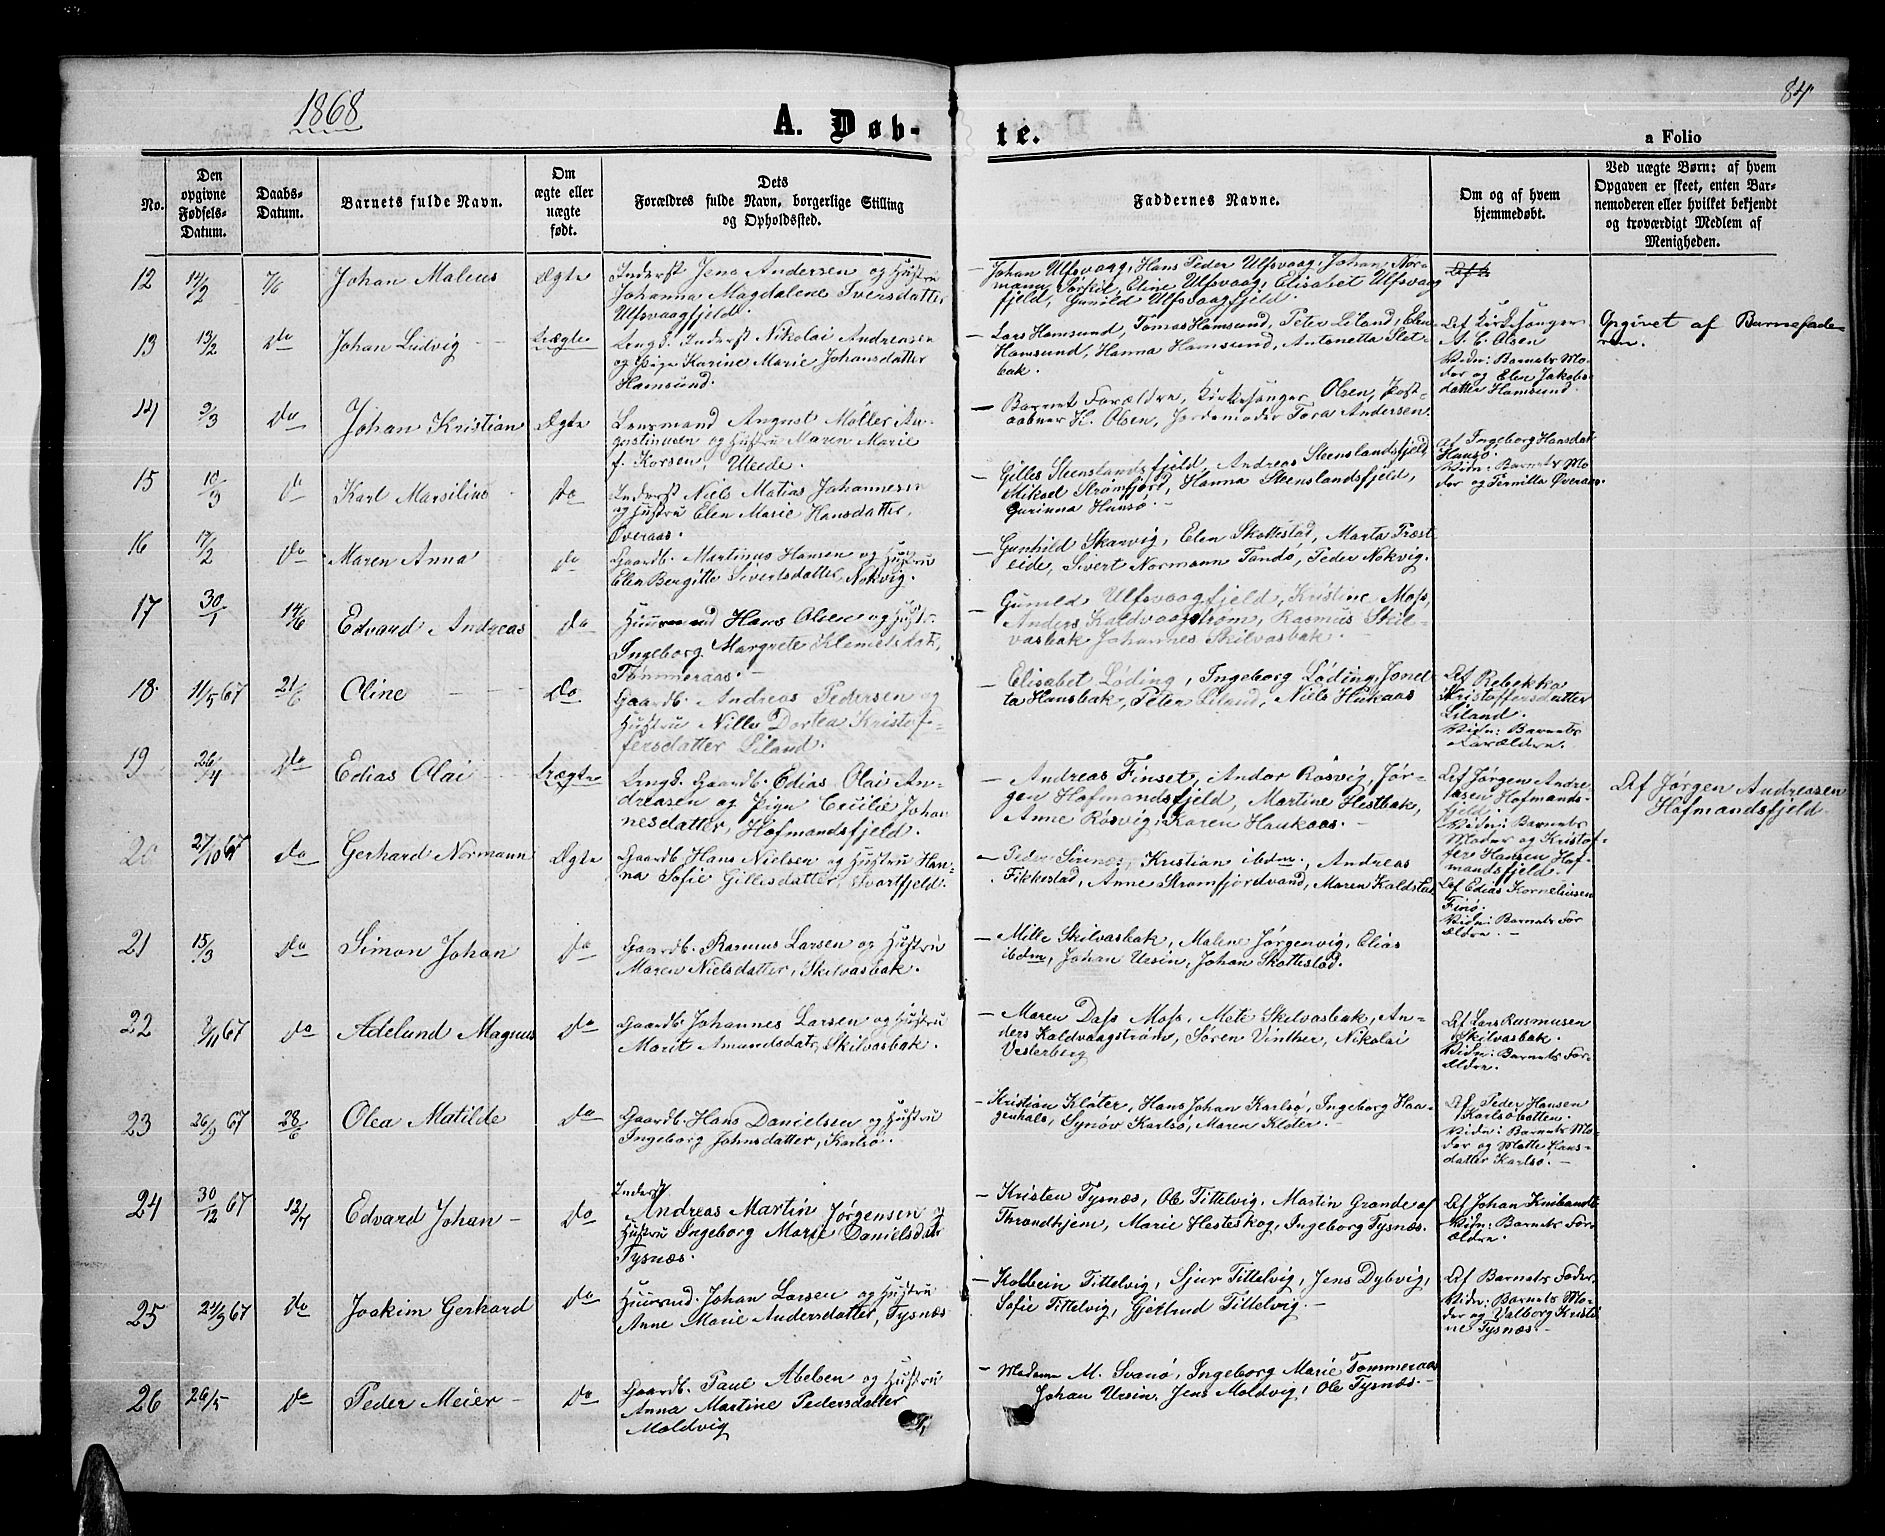 1868
84
A. Døb-
te.
a Folio
No.
Den
opgivne
Fødsels-
Datum.
Daabs-
Datum.
Barnets fulde Navn.
Om
ægte eller
uægte
født.
Dets
Forældres fulde Navn, borgerlige Stilling
og Opholdssted.
Faddernes Navne.
Om og af hvem
hjemmedøbt.
Ved uægte Børn: af hvem
Opgaven er skeet, enten Bar-
nemoderen eller hvilket bekjendt
og troværdigt Medlem af
Menigheden.
12 14/2 7/6 Johan Maleus Ægte
Inderst Jens Andersen og Hustru
Johanna Magdalene Iversdatter
Ulfsvaagfjeld.
Johan Ulfsvaag, Hans Peder Ulfsvaag, Johan Nor-
mann, Eline Ulfsvaag, Elisabet Ulfsvaag
fjeld, Gunild Ulfsvaagfjeld.
13 13/2 Do Johan Ludvig Uægte
Ungk. Inderst Nikolai Andreasen
og Pige Karine Marie Johansdatter
Hamsund.
Lars Hamsund, Tomas Hamsund, Peter Liland, Elen
Hamsund, Hanna Hamsund, Antonetta Slet-
bak.
Af Kirkesanger
A. C. Olsen
Vidn: Barnets Mo-
der og Elen Jakobs-
datter Hamsund.
Opgivet af Barnefade-
ren.
14 9/3 Do Johan Kristian Ægte
Lensmand August Møller Au-
gustinusen og Hustru Maren Marie
f. Korsen, Ulvede.
Barnets Forældre, Kirkesanger Olsen, Post-
aabner H. Olsen, Jordemoder Tora Andersen.
15 10/3 Do Karl Marsilius Do
Inderst Niels Matias Johannesen
og Hustru Elen Marie Hansdatter,
Øveraas.
Gilles Steenslandsfjeld, Andreas Steenslandsfjeld,
Mikael Strømfjord, Hanna Steenslandsfjeld,
Gurinna Hansø.
af Ingeborg Hansdat
Hansø.
Vidn: Barnets Mo-
der og Pernilla Øveraas
16 17/2 Do Maren Anna Do
Gaardb. Martinus Hansen og Hustru
Elen Bergitte Sivertsdatter, Nokvig.
Gunhild Skarvig, Elen Skottestad, Marta Præst-
eide, Sivert Normann Tandø, Peder Nokvig.
17 30/1 14/6 Edvard Andreas Do
Huusmand Hans Olsen og Hustr.
Ingeborg Margrete Klemetsdat.,
Tømmeraas.
Gunild Ulfsvaagfjeld, Kristine Moss,
Anders Kaldvaagstrøm, Rasmus Skil-
vasbak, Johannes Skilvasbak.
18. 11/5 67 21/6 Oline Do
Gaardb. Andreas Pedersen og
Hustru Nille Dortea Kristof-
fersdatter Liland.
Elisabet Løding, Ingeborg Løding, Jonet-
ta Hansbak, Peter Liland, Niels Hukaas
Af Rebekka
Kristoffersdatter
Liland.
Vidn: Barnets
Forældre.
19 26/4 Do Edias Olai Uægte
Ungk. Gaardb. Edias Olai An-
dreasen og Pige Cecilie Johan
nesdatter, Hofmandsfjeld.
Andreas Finset, Andor Rosvig, Jør-
gen Hofmandsfjeld, Martine Hestbak,
Anne Rosvig, Karen Haukaas.
Af Jørgen Andre
asen Hofmands-
fjeld.
Vidn: Barnets
Moder og Kristof-
fer Hansen Hof-
mandsfjeld.
Af Jørgen Andreasen
Hofmandsfjeld.
20 27/10 67 Do Gerhard Normann Ægte
Gaardb. Hans Nielsen og Hustru Han-
na Sofie Gillesdatter, Svartfjeld.
Peder Sirenes, Kristian ibdm., Andreas
Fikkestad, Anne Strømfjordvand, Maren Kalds
Af Edias Korneliusen
Finø.
Vidn: Barnets For
ældre.
21 15/3 Do Simon Johan Do
Gaardb. Rasmus Larsen og Hustru
Maren Nielsdatter, Skilvasbak.
Mille Skilvasbak, Malene Jørgenvig, Elias
ibdm, Johan Ursin, Johan Skottestad.
22 3/11 67 Do Adelund Magnus Do
Gaardb. Johannes Larsen og Hustru
Marit Amundsdatr, Skilvasbak.
Maren Dass Moss, Mete Skilvasbak, An-
ders Kaldvaagstrøm, Søren Vinther, Nikolai
Vesterberg
Af Lars Rasmusen
Skilvasbak.
Vidn: Barnets For-
ældre.
23 26/9 67 28/6 Olea Matilde Do
Gaardb. Hans Danielsen og Hustru
Ingeborg Johnsdatter, Karlsø.
Kristian Kløter, Hans Johan Karlsø, Ingeborg Haa-
genhals, Synøv Karlsø, Maren Kløter.
Af Peder Hansen
Karlsøbotten.
Vidn: Barnets Mo-
der og Mette Hans-
datter Karlsø.
24 30/12 67 12/7 Edvard Johan Do
Inderst
Andreas Martin Jørgensen og
Hustru Ingeborg Marie Danielsdatr
Tysnæs.
Kristen Tysnæs, Ole Tittelvig, Martin Grande af
Throndhjem, Marie Hesteskog, Ingeborg Tysnæs.
Af Johan
Vidn: Barnets For-
ældre.
25 24/9 67 Do Joakim Gerhard Do
Huusmd. Johan Larsen og Hustru
Anne Marie Andersdatter, Tysnæs
Kolbein Tittelvig, Sjur Tittelvig, Jens Dybvig,
Sofie Tittelvig, Gjertrud Tittelvig.
Af Barnets Fader.
Vidn: Barnets Mo-
der og Valborg Kristi
ne Tysnæs.
26 26/5 Do Peder Meier Do
Gaardb. Paul Abelsen og Hustru
Anna Martine Pedersdatter
Moldvig
Madame M. Svanø, Ingeborg Marie Tommeraas
Johan Ursin, Jens Moldvig, Ole Tysnæs.